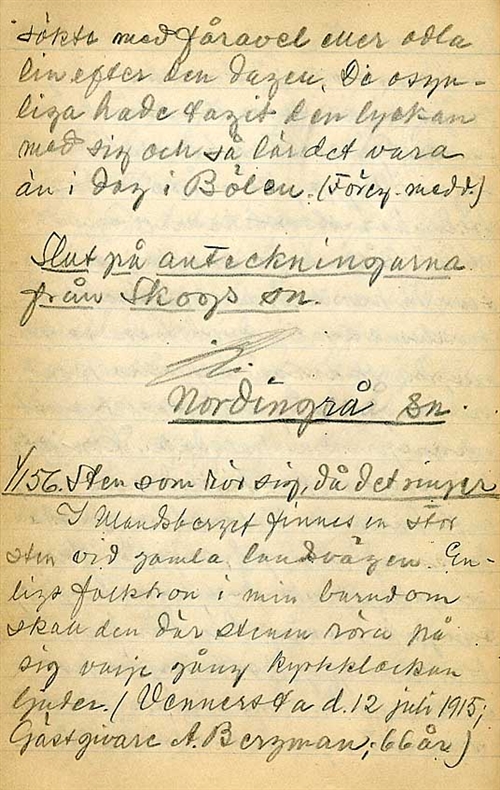 sökte med fåravel eller odla
lin efter den dagen. De osyn-
liga hade tagit den lyckan
med sig och så lär det vara
än i dag i Bölen. (Föreg. medd.)
Slut på anteckningarna
från Skogs sn.
Nordingrå sn.
156. Sten som rör sig, då det ringer
I Ullandsberget finnes en stor
sten vid gamla landsvägen. En-
ligt folktron i min barndom
skall den där stenen röra på
sig varje gång kyrkklockan
ljuder. (Vennersta d. 12 juli 1915;
Gästgivare A. Bergman, 66 år)